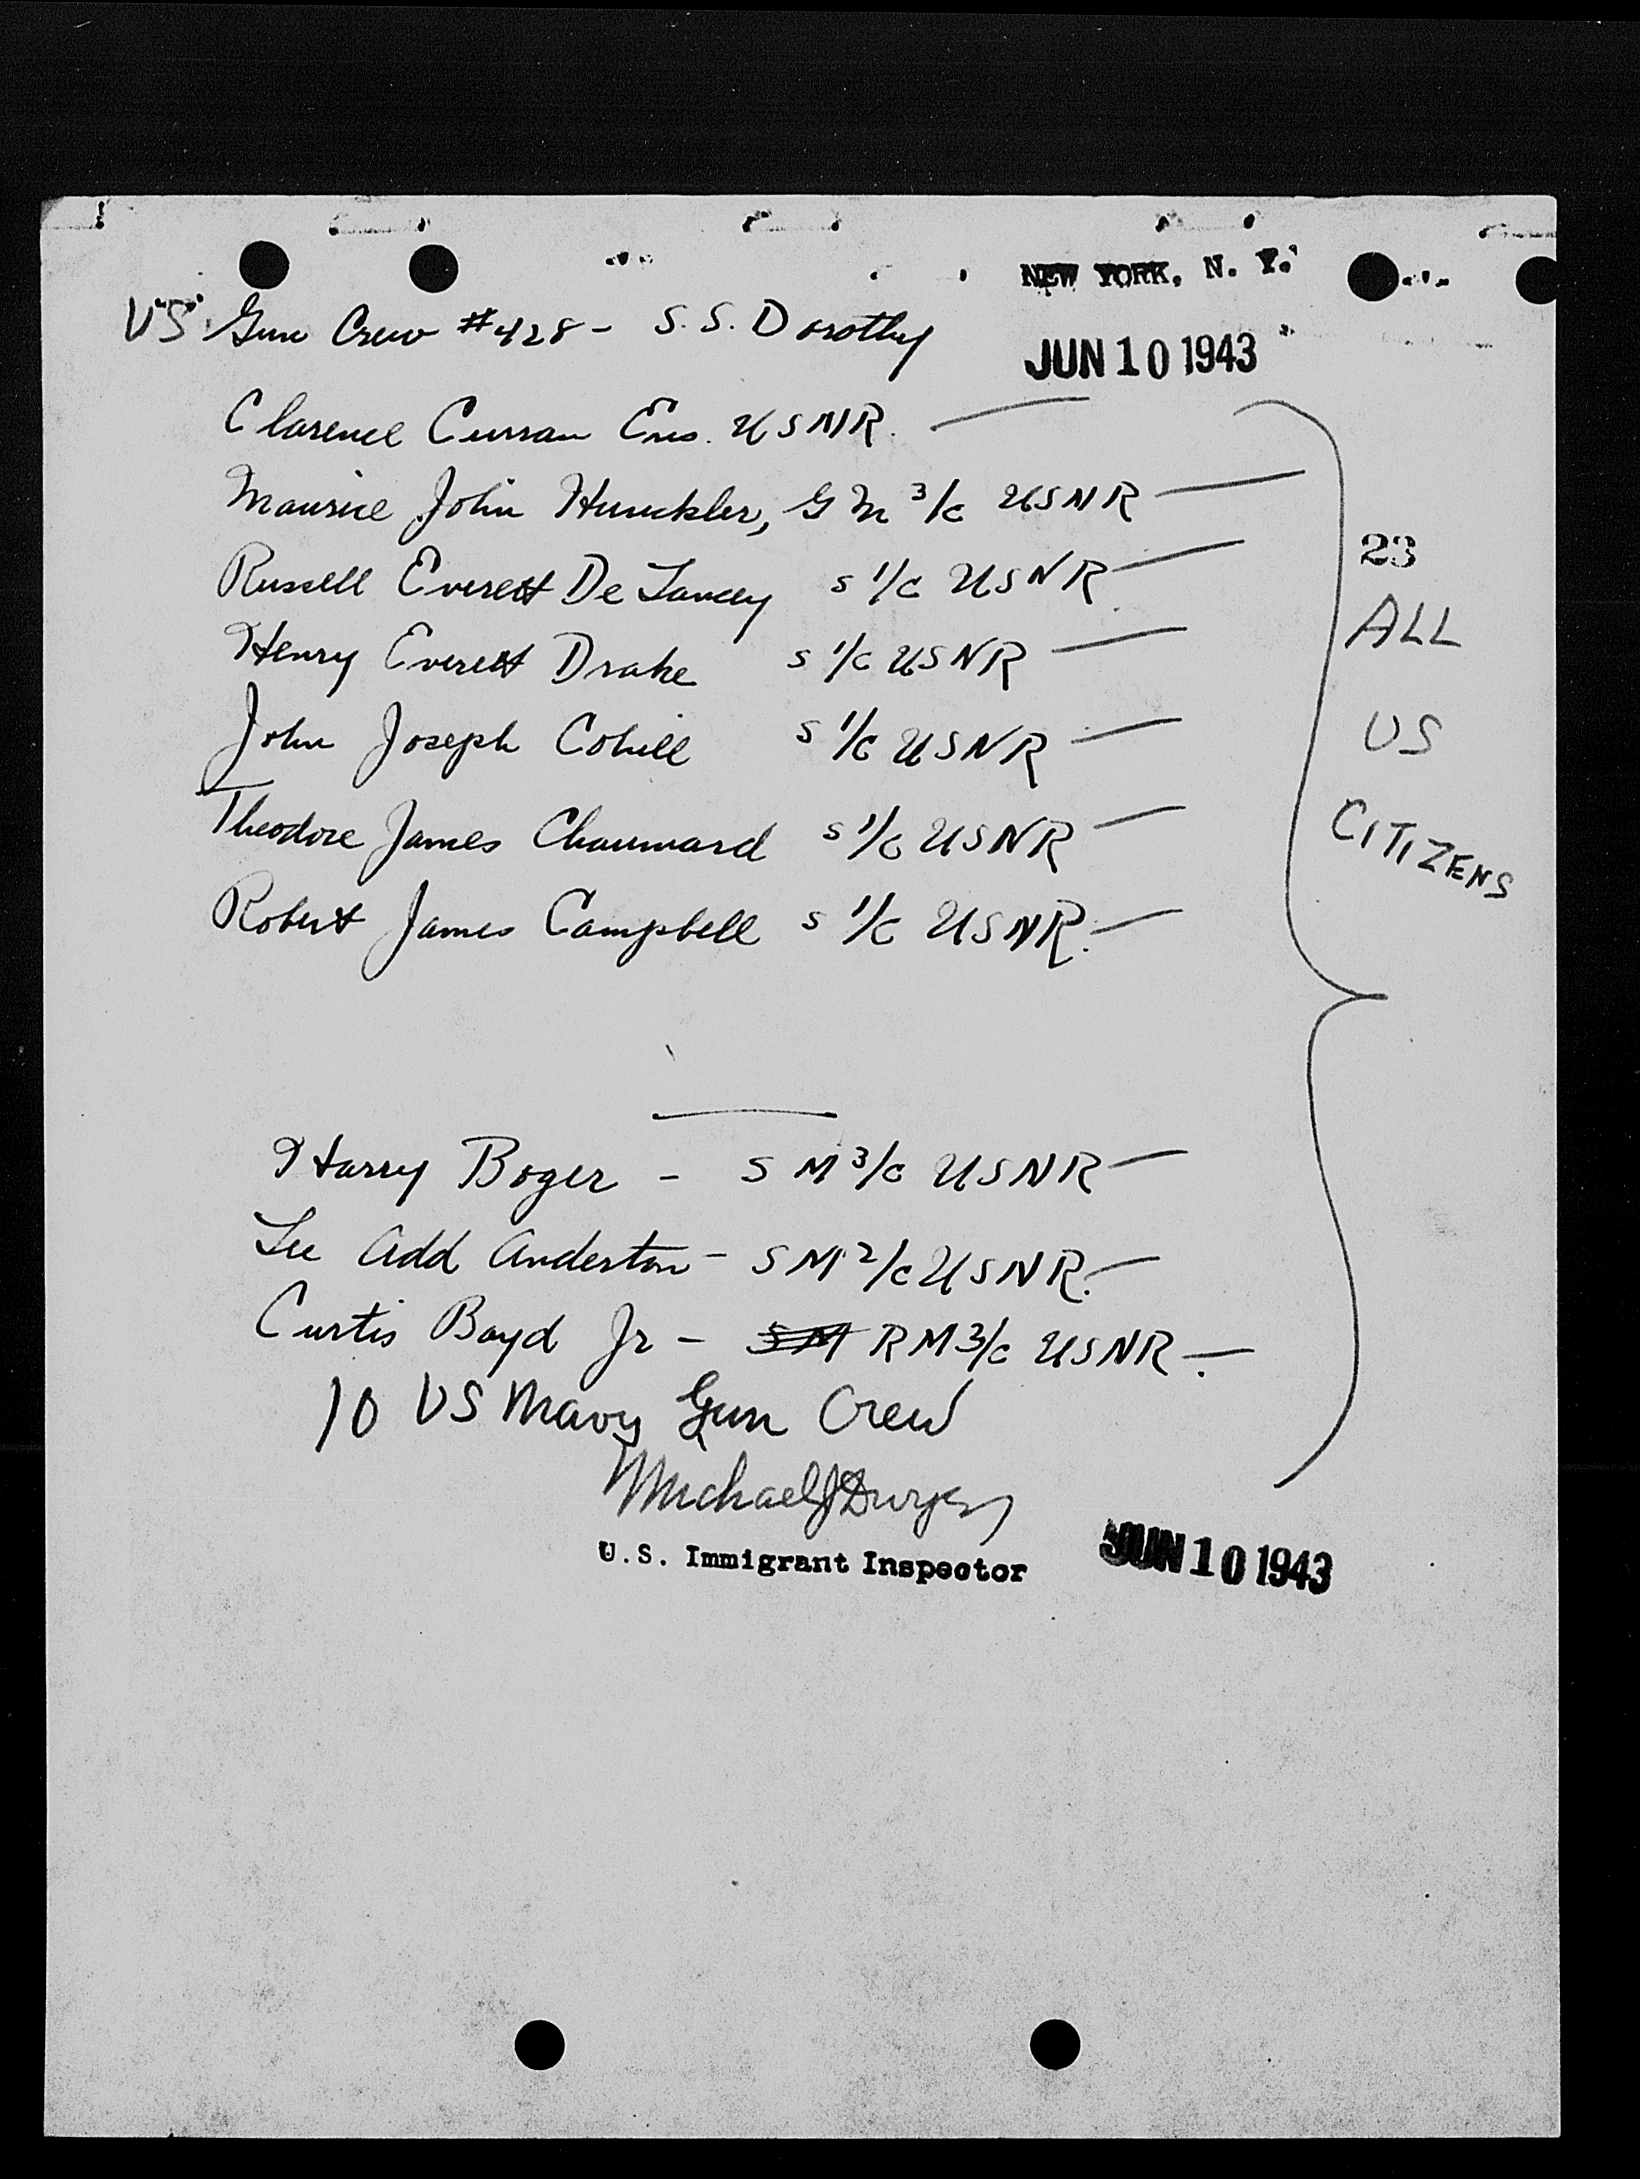 NEW YORK, N. Y.
US Gun Crew #428 - S.S. Dorothy
JUN 10 1943
Clarence Curran Ens. USNR. —
Maurice John Hunckler, GM 3/c USNR —
Russell Everett De Lancey S 1/c USNR —
Henry Everett Drake S 1/c USNR —
John Joseph Cohill S 1/c USNR —
Theodore James Chaumard S 1/c USNR —
Robert James Campbell S 1/c USNR. —
23
ALL
US
CITIZENS
Harry Boger - SM 3/c USNR —
Lee Add Anderton - SM 2/c USNR. —
Curtis Boyd Jr - SM RM 3/c USNR. —
10 US Navy Gun Crew
Michael J Dwyer
U.S. Immigrant Inspector
JUN 10 1943